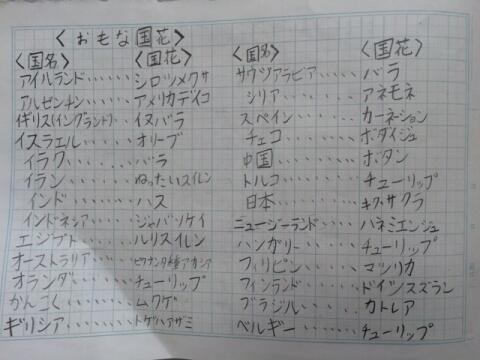 〈おもな国花〉
〈国名〉 〈国花〉
アイルランド‥‥‥シロツメクサ
アルゼンチン‥‥‥アメリカデイコ
イギリス(イングランド)‥イヌバラ
イスラエル‥‥‥オリーブ
イラク‥‥‥バラ
イラン‥‥‥ねったいスイレン
インド‥‥‥ハス
インドネシア‥‥‥ジャバソケイ
エジプト‥‥‥ルリスイレン
オーストラリア‥‥‥ピクナンタ種アカシア
オランダ‥‥‥チューリップ
かんこく‥‥‥ムクゲ
ギリシア‥‥‥トゲハアザミ
〈国名〉 〈国花〉
サウヅアラビア‥‥‥バラ
シリア‥‥‥アネモネ
スペイン‥‥‥カーネーション
チェコ‥‥‥ボダイジュ
中国‥‥‥ボタン
トルコ‥‥‥チューリップ
日本‥‥‥キク・サクラ
ニュージーランド‥‥‥ハネミエンジュ
ハンガリー‥‥‥チューリップ
フィリピン‥‥‥マツリカ
フィンランド‥‥‥ドイツスズラン
ブラジル‥‥‥カトレア
ベルギー‥‥‥チューリップ